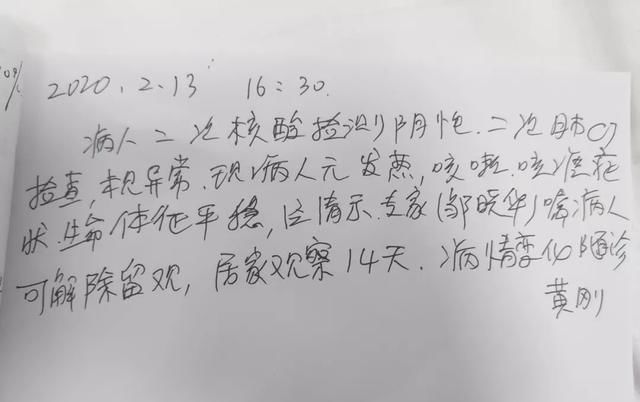 2020.2.13 16:30.
病人二次核酸检测阴性.二次肺CT
检查,未见异常.现病人无发热,咳嗽.咳痰症
状.生命体征平稳,应请示专家(邹晓华)嘱病人
可解除留观,居家观察14天.病情变化随诊
黄刚